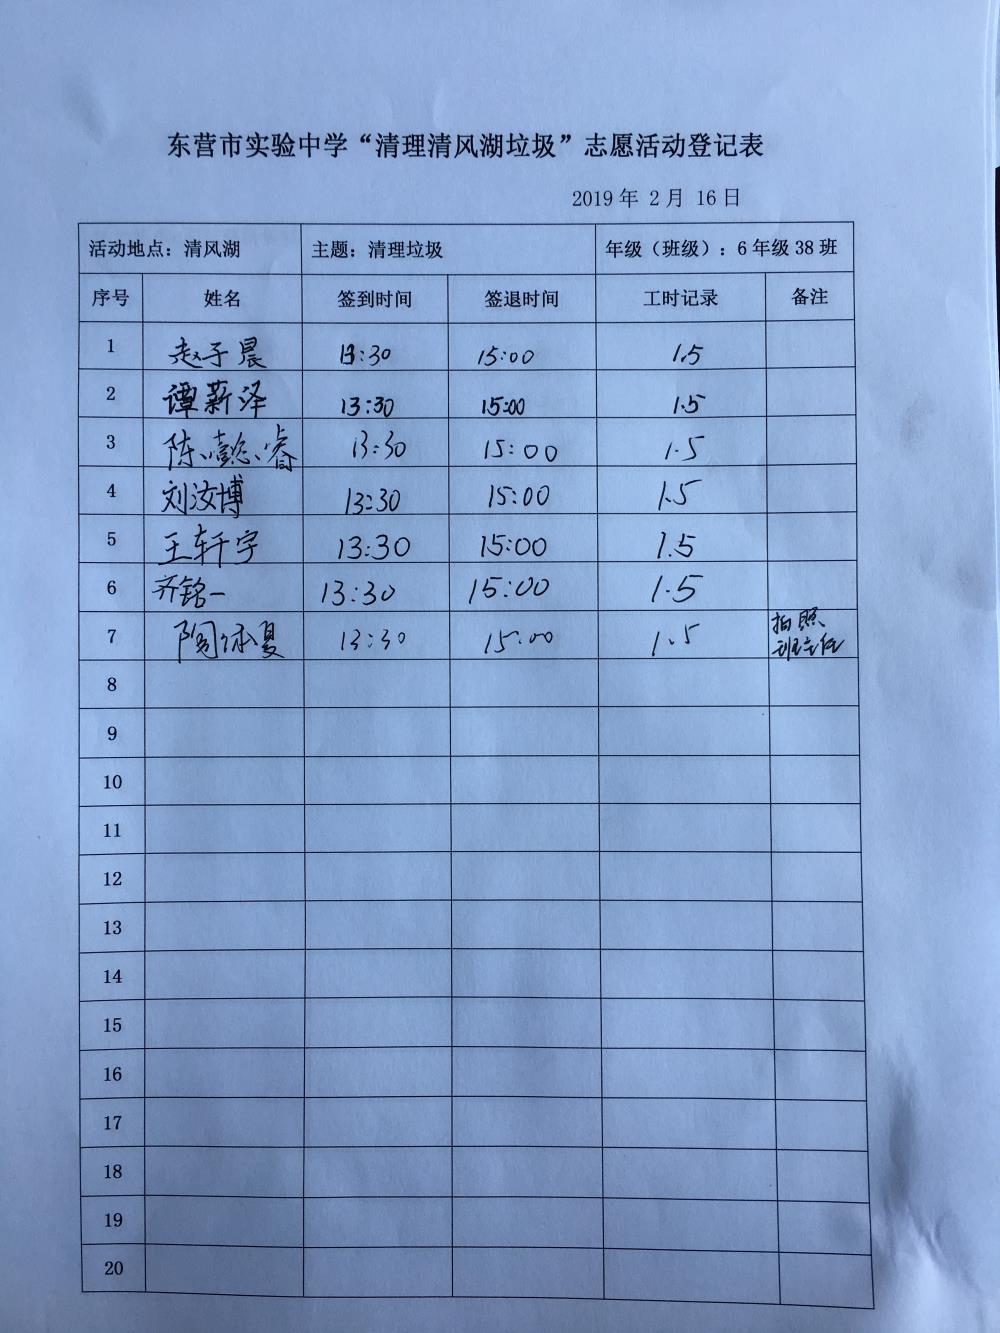 东营市实验中学“清理清风湖垃圾”志愿活动登记表
2019 年 2 月 16 日
活动地点：清风湖 主题：清理垃圾 年级（班级）：6 年级 38 班
序号 姓名 签到时间 签退时间 工时记录 备注
1 赵子晨 13:30 15:00 1.5
2 谭薪泽 13:30 15:00 1.5
3 陈懿睿 13:30 15:00 1.5
4 刘汝博 13:30 15:00 1.5
5 王轩宇 13:30 15:00 1.5
6 齐铭一 13:30 15:00 1.5
7 13:30 15:00 1.5 拍照
班主任
8
9
10
11
12
13
14
15
16
17
18
19
20